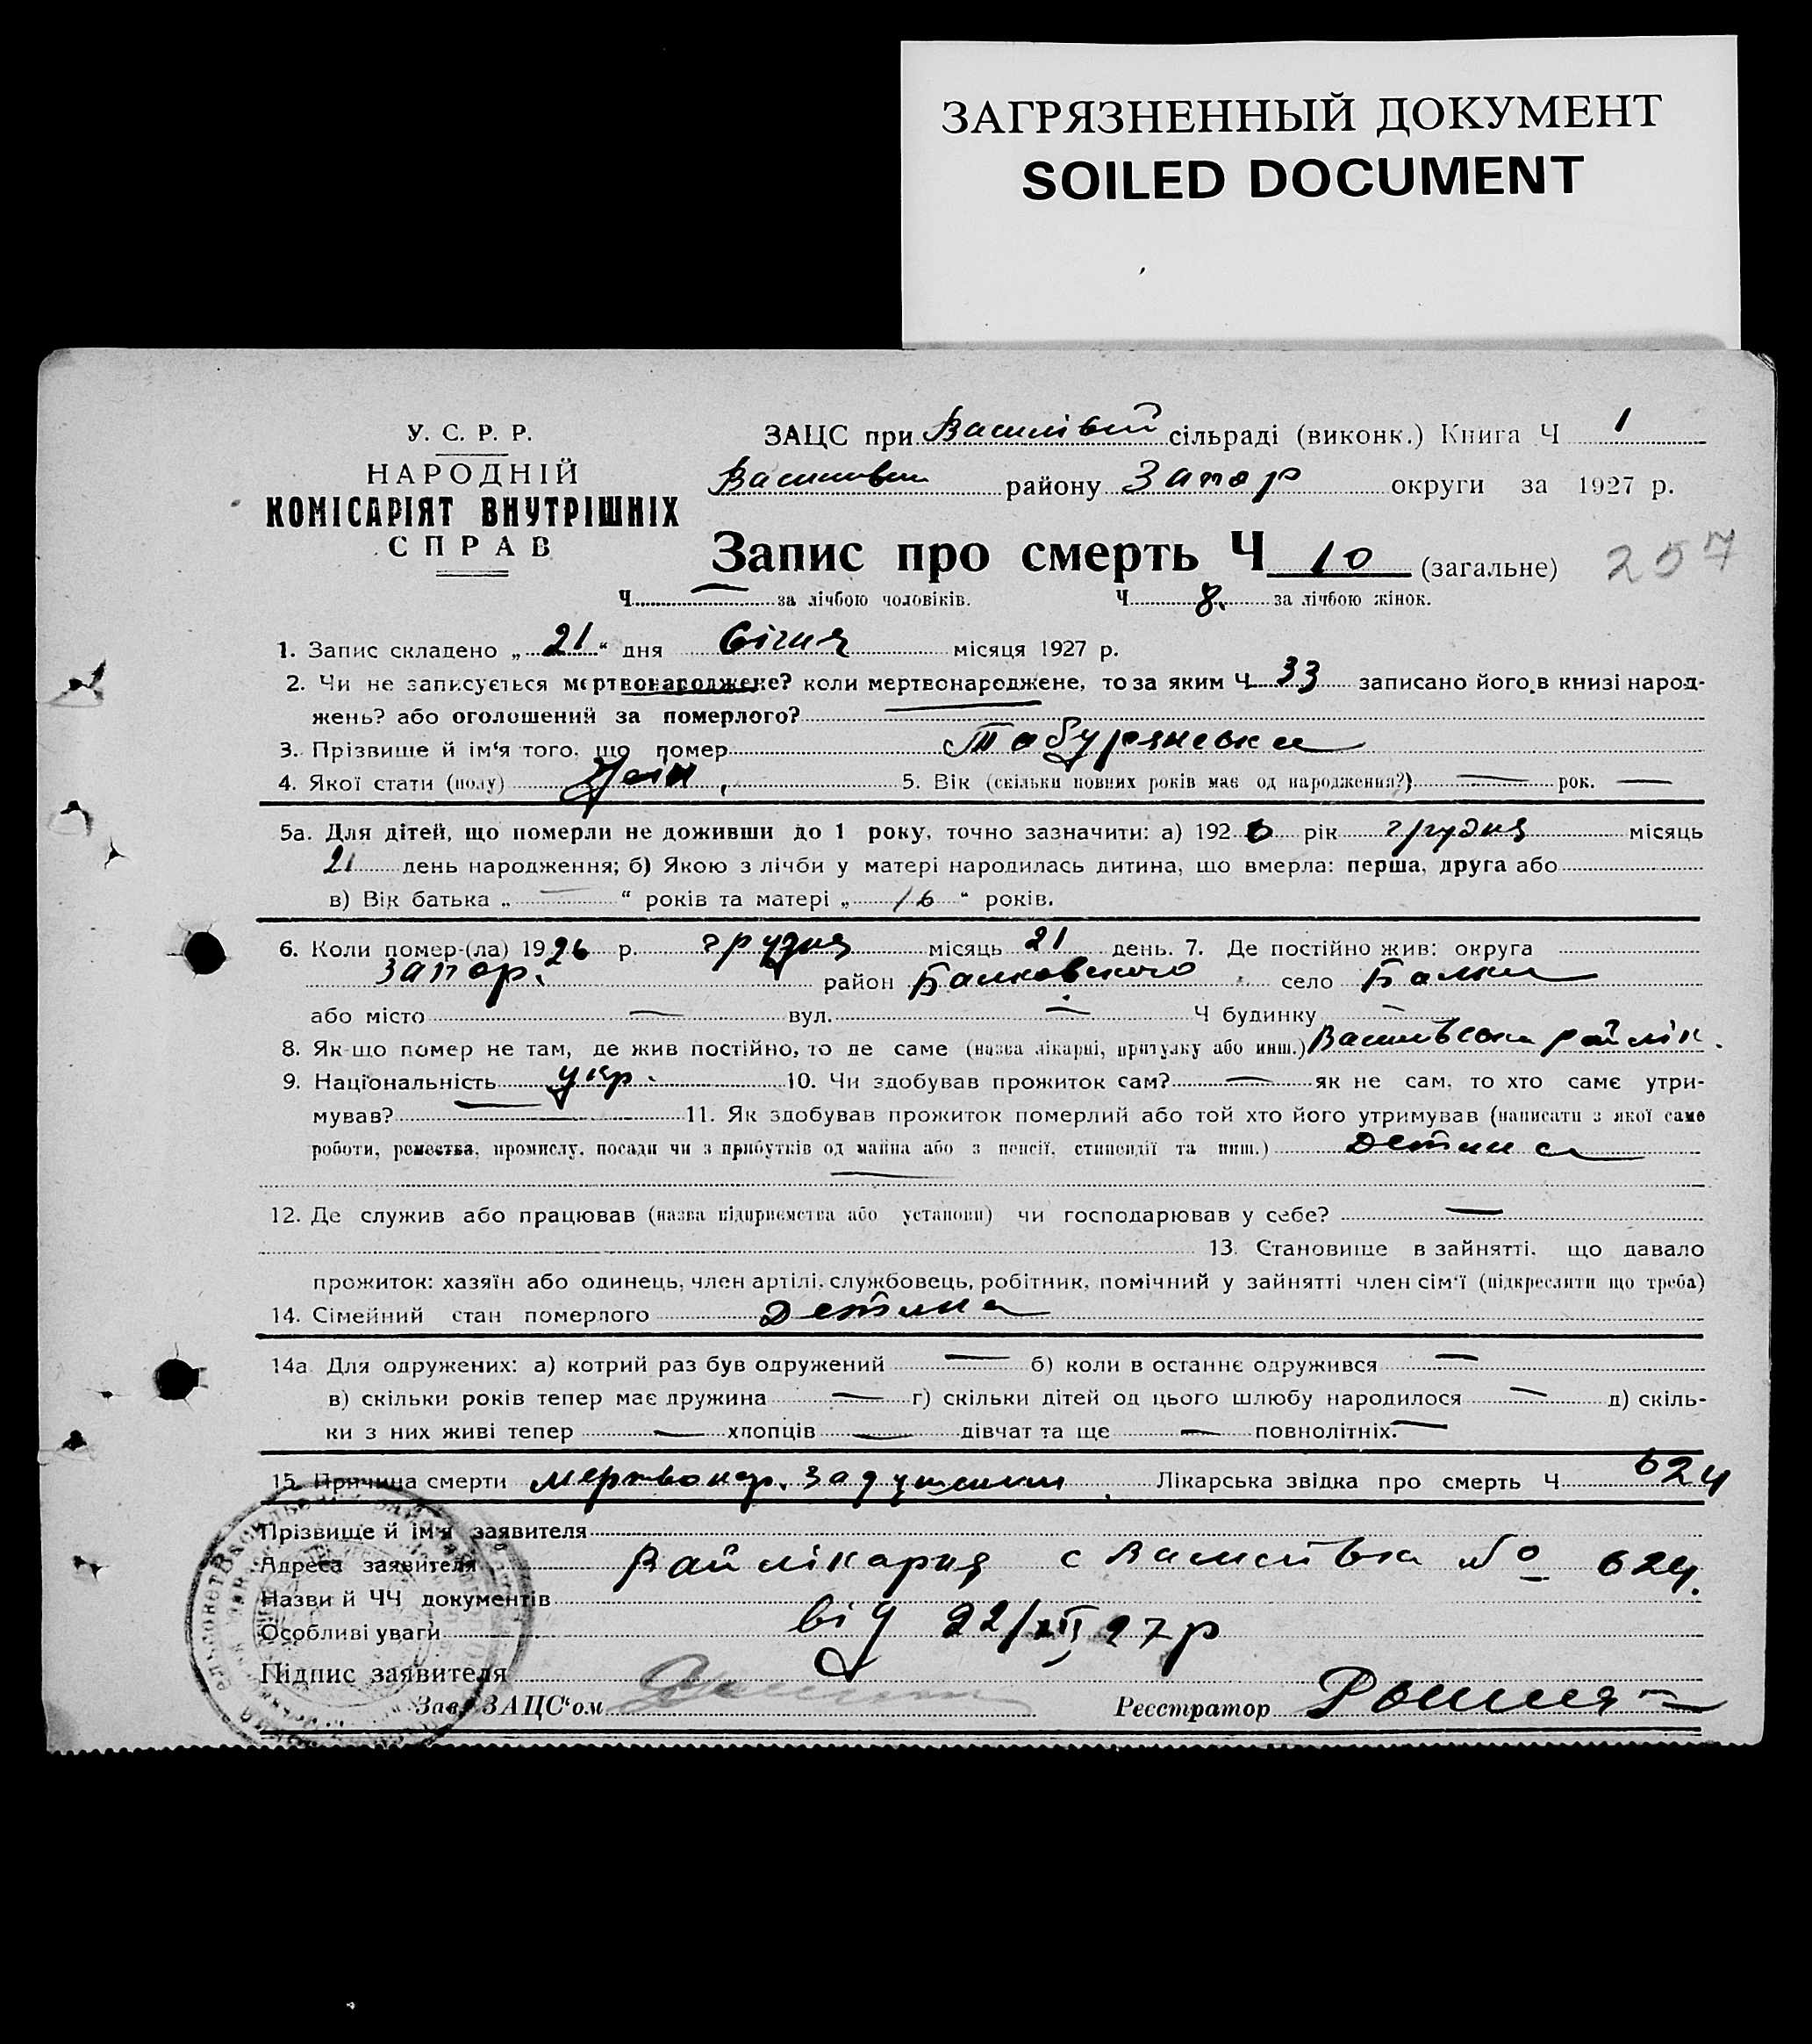 ЗАГРЯЗНЕННЫЙ ДОКУМЕНТ
SOILED DOCUMENT
У. С. Р. Р.
НАРОДНІЙ
КОМІСАРІЯТ ВНУТРІШНІХ
СПРАВ
ЗАЦС при Василівкій сільраді (виконк.) Книга Ч 1
району Запор округи за 1927 р.
Запис про смерть Ч 10 (загальне) 257
Ч — за лічбою чоловіків. Ч 8. за лічбою жінок.
1. Запис складено „ 21 “ дня Січня місяця 1927 р.
2. Чи не записується мертвонароджене? коли мертвонароджене, то за яким Ч 33 записано його в книзі народ-
жень? або оголошений за померлого?
3. Прізвище й ім‘я того, що помер Табурянська
4. Якої стати (полу) Жін, 5. Вік (скільки повних років має од народження?) — рок. —
5а. Для дітей, що померли не доживши до 1 року, точно зазначити: а) 1926 рік грудня місяць
21 день народження; б) Якою з лічби у матері народилась дитина, що вмерла: перша, друга або
в) Вік батька „ — “ років та матері „ 16 “ років.
6. Коли помер-(ла) 1926 р. грудня місяць 21 день. 7. Де постійно жив: округа
Запор. район Балковського село Балки
або місто — вул. — Ч будинку —
8. Як-що помер не там, де жив постійно, то де саме (назва лікарні, притулку або инш.) Василівська райлік.
9. Національність укр. 10. Чи здобував прожиток сам? — як не сам, то хто саме утри-
мував? — 11. Як здобував прожиток померлий або той хто його утримував (написати з якої саме
роботи, ремества, промислу, посади чи з прибутків од майна або з пенсії, стипендії та инш.) детина
—
12. Де служив або працював (назва підприємства або установи) чи господарював у себе? —
13. Становище в зайнятті, що давало
прожиток: хазяїн або одинець, член артілі, службовець, робітник, помічний у зайнятті член сім‘ї (підкреслити що треба)
14. Сімейний стан померлого детина
14а Для одружених: а) котрий раз був одружений — б) коли в останнє одружився —
в) скільки років тепер має дружина — г) скільки дітей од цього шлюбу народилося — д) скіль-
ки з них живі тепер — хлопців — дівчат та ще — повнолітніх. —
15. Причина смерти мертвонар. Лікарська звідка про смерть Ч 624
Прізвище й ім‘я заявителя
Адреса заявителя Райлікарня с Василівка № 624.
Назви й ЧЧ документів
Особливі уваги від 22/XII 27 р
Підпис заявителя
Зав. ЗАЦС‘ом Реєстратор